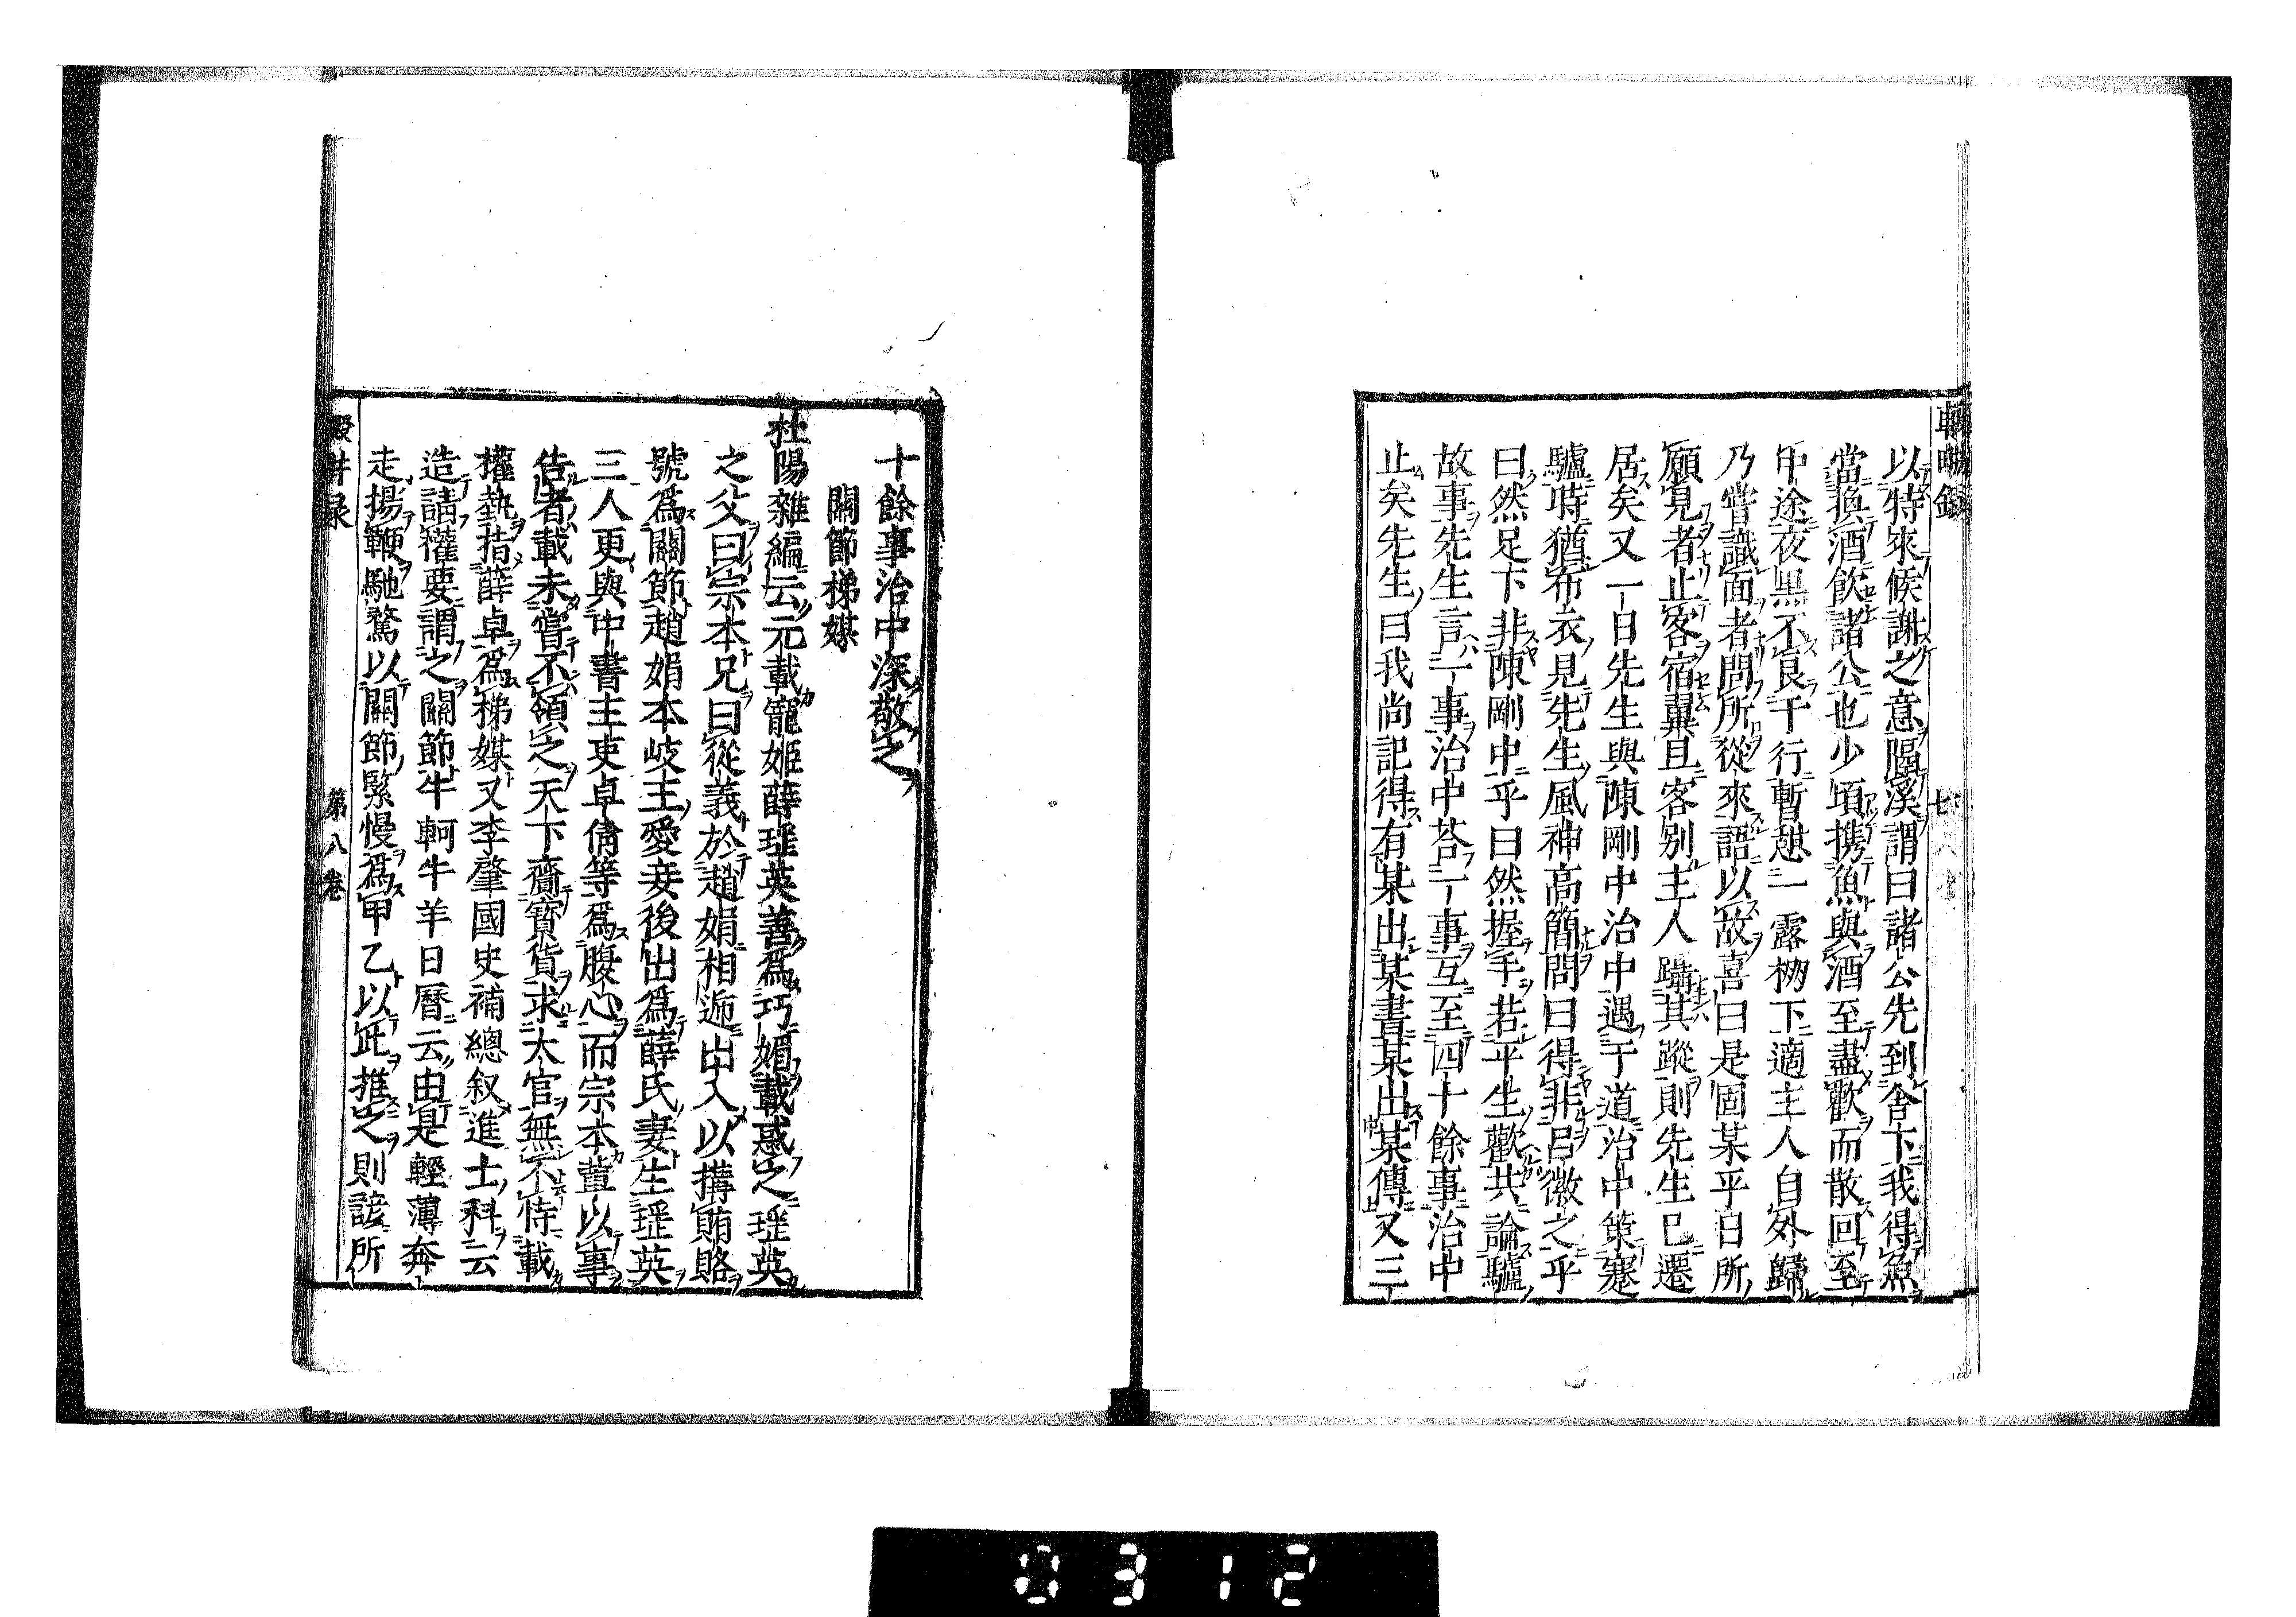 輟畊錄
七
以特來候謝之意隔溪謂曰諸公先到舍下我得魚
當換酒飲諸公也少頃携魚與酒至盡歡而散回至
中途夜黑不良于行暫憩一露棚下適主人自外歸
乃嘗識面者問所從來語以故喜曰是固某平日所
願見者止客宿翼旦客別主人躡其蹤則先生已遷
居矣又一日先生與陳剛中治中遇于道治中策蹇
驢時猶布衣見先生風神高簡問曰得非呂徽之乎
曰然足下非陳剛中乎曰然握手若平生歡共論驢
故事先生言一事治中荅一事互至四十餘事治中
止矣先生曰我尚記得有某出某書某出某傳又三
十餘事治中深敬之
關節梯媒
杜陽雜編云元載寵姬薛瑤英善爲巧媚載惑之瑤英
之父曰宗本兄曰從義於趙娟相逓出入以搆賄賂
號爲關節趙娟本岐王愛妾後出爲薛氏妻生瑤英
三人更與中書主吏卓倩等爲腹心而宗本輩以事
告者載未嘗不領之天下齎寶貨求大官無不恃載
權熱指薛卓爲梯媒又李肇國史補總叙進士科云
造請權要謂之關節牛軻牛羊日曆云由是輕薄奔
走揚鞭馳騖以關節緊慢爲甲乙以此推之則諺所
第八卷